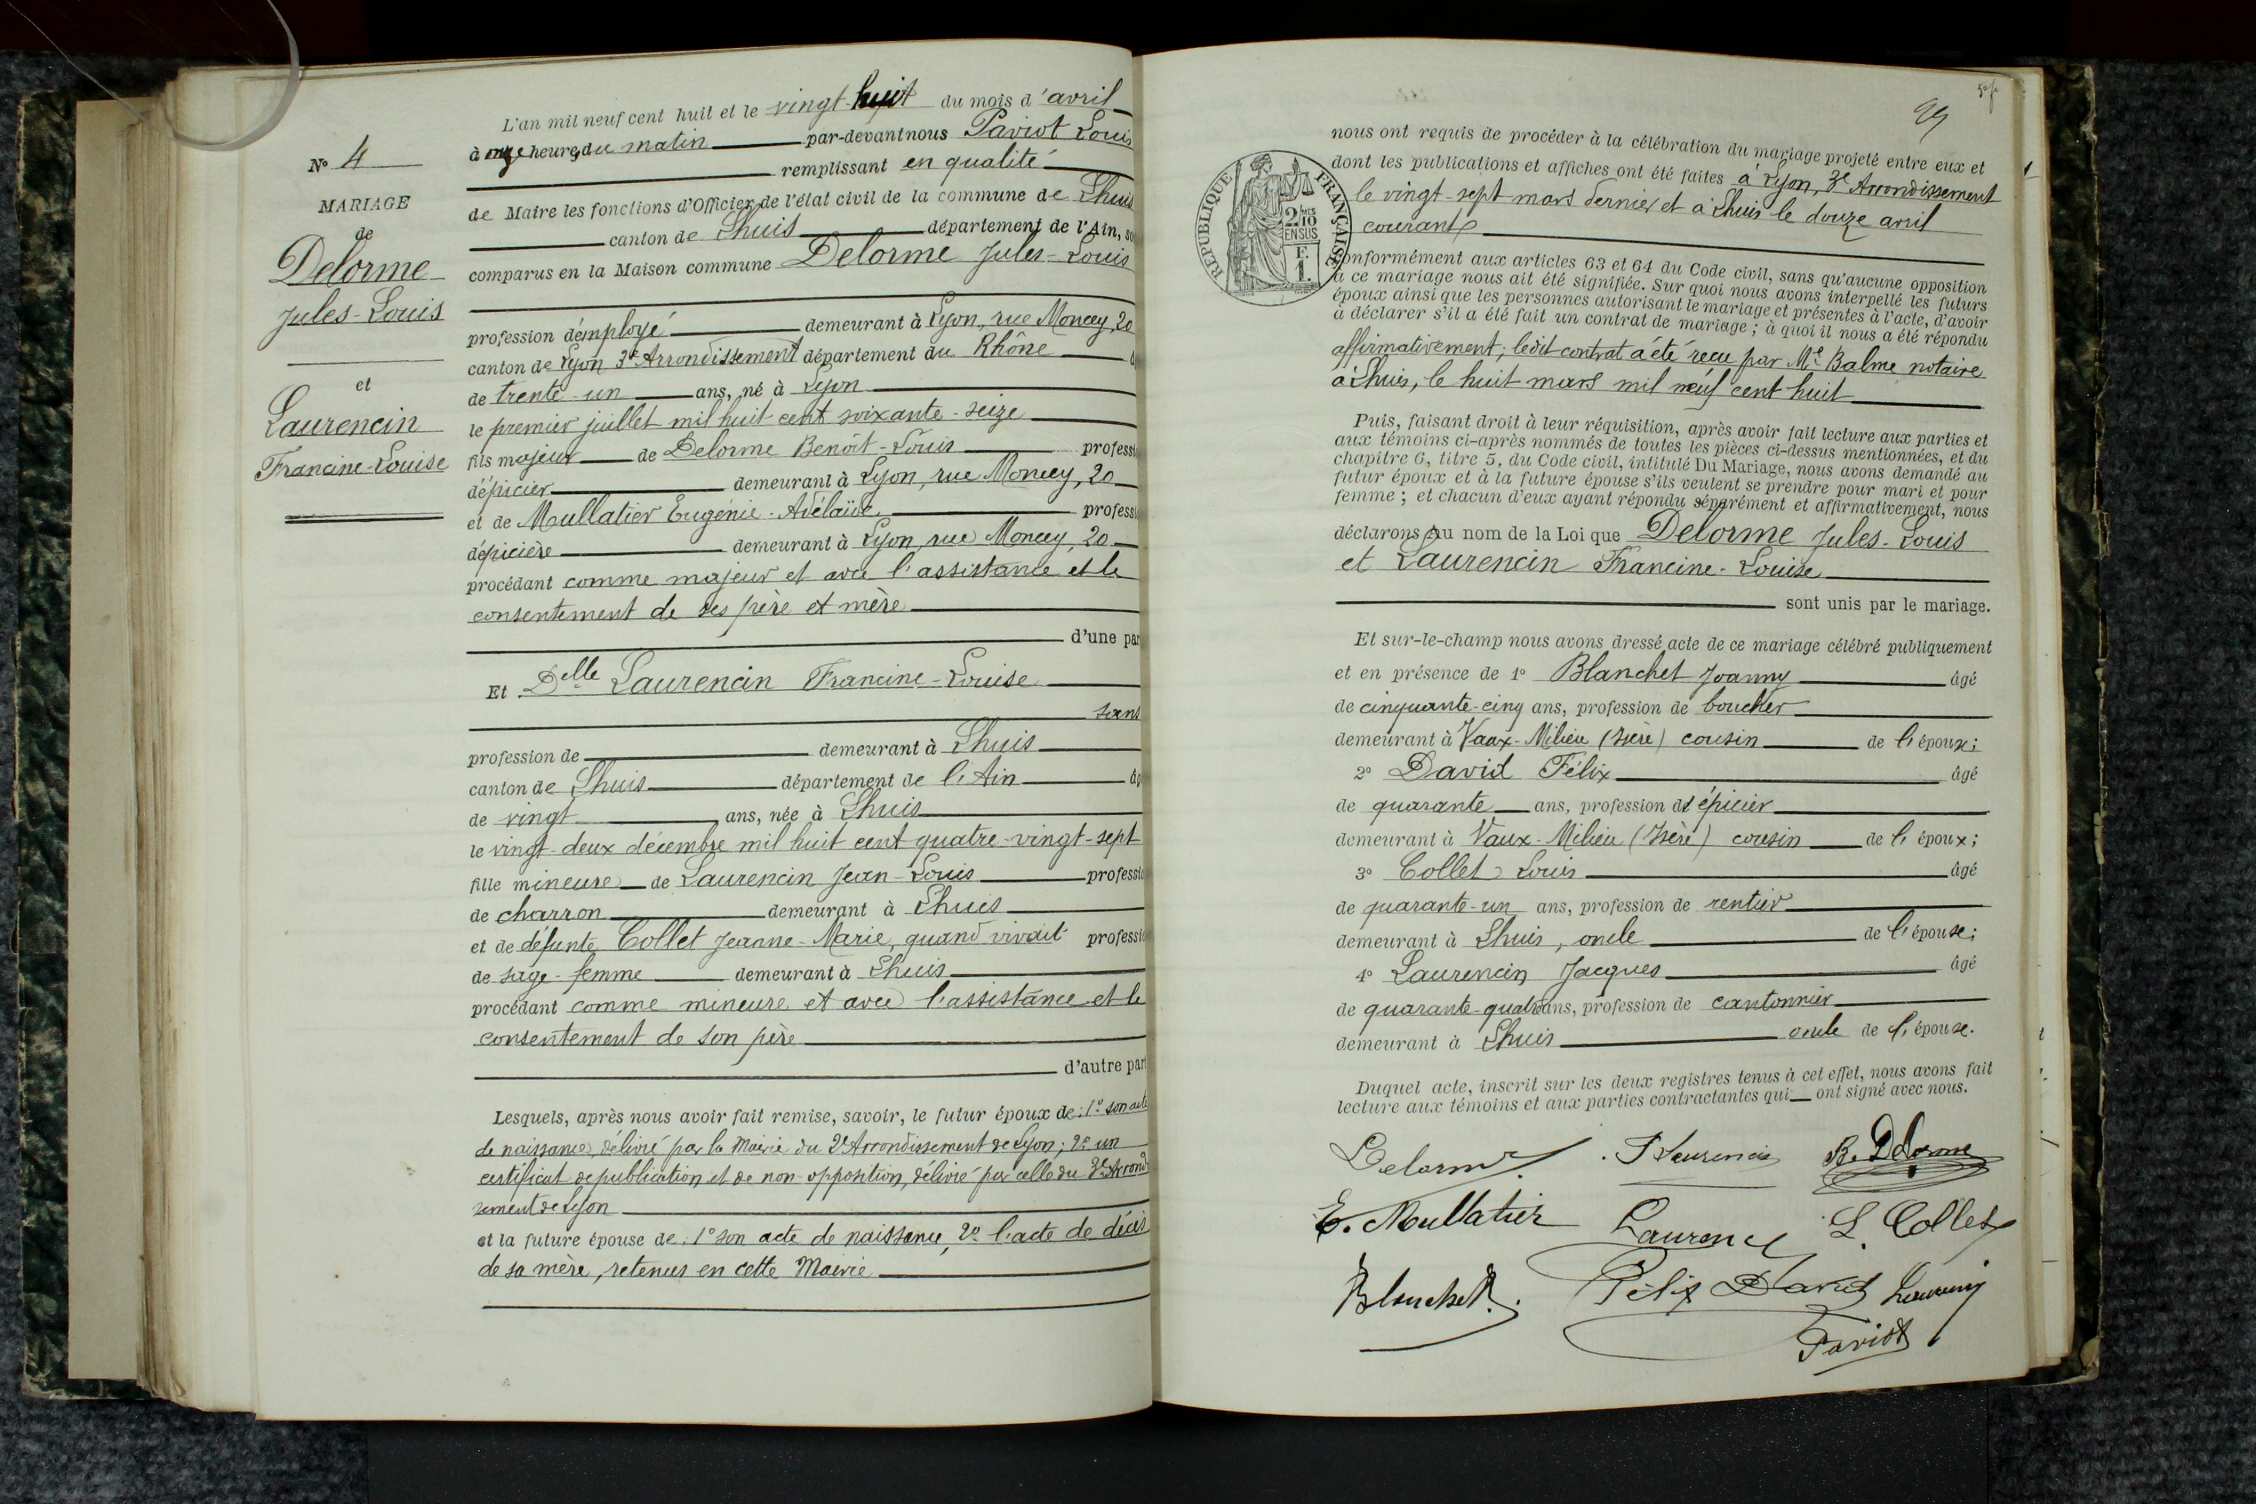 N° 4
MARIAGE
de
Delorme
Jules-Louis
et
Laurencin
Francine-Louise
L'an mil neuf cent huit et le vingt-huit du mois d'avril
à onze heures du matin par-devant nous Paviot Louis
remplissant en qualité
de Maire les fonctions d'Officier de l'état civil de la commune de Lhuis
canton de Lhuis département de l'Ain, so
comparus en la Maison commune Delorme Jules-Louis
profession d'employé demeurant à Lyon, rue Moncey, 20
canton de Lyon 3e Arrondissement département du Rhône
de trente-un ans, né à Lyon
le premier juillet mil huit cent soixante-seize
fils majeur de Delorme Benoît-Louis professi
d'épicier demeurant à Lyon, rue Moncey, 20
et de Mullatier Eugénie-Adélaïde professi
d'épicière demeurant à Lyon, rue Moncey, 20
procédant comme majeur et avec l'assistance et le
consentement de ses père et mère
d'une par
Et Delle Laurencin Francine-Louise
sans
profession de demeurant à Lhuis
canton de Lhuis département de l'Ain âg
de vingt ans, née à Lhuis
le vingt-deux décembre mil huit cent quatre-vingt-sept
fille mineure de Laurencin Jean-Louis professio
de charron demeurant à Lhuis
et de défunte Collet Jeanne-Marie, quand vivait professio
de sage-femme demeurant à Lhuis
procédant comme mineure et avec l'assistance et le
consentement de son père
d'autre part
Lesquels, après nous avoir fait remise, savoir, le futur époux de: 1° son acte
de naissance, délivré par la Mairie du 2e Arrondissement de Lyon; 2° un
certificat de publication et de non-opposition, délivré par celle du 3e Arrond
sement de Lyon
et la future épouse de: 1° son acte de naissance, 2° l'acte de décès
de sa mère, retenus en cette Mairie
nous ont requis de procéder à la célébration du mariage projeté entre eux et
dont les publications et affiches ont été faites à Lyon, 3e Arrondissement
le vingt-sept mars dernier et à Lhuis le douze avril
courant
RÉPUBLIQUE FRANÇAISE
2 10
EN SUS
F.
1.
conformément aux articles 63 et 64 du Code civil, sans qu'aucune opposition
à ce mariage nous ait été signifiée. Sur quoi nous avons interpellé les futurs
époux ainsi que les personnes autorisant le mariage et présentes à l'acte, d'avoir
à déclarer s'il a été fait un contrat de mariage; à quoi il nous a été répondu
affirmativement; ledit contrat a été reçu par Me Balme notaire
à Lhuis, le huit mars mil neuf cent huit
Puis, faisant droit à leur réquisition, après avoir fait lecture aux parties et
aux témoins ci-après nommés de toutes les pièces ci-dessus mentionnées, et du
chapitre 6, titre 5, du Code civil, intitulé Du Mariage, nous avons demandé au
futur époux et à la future épouse s'ils veulent se prendre pour mari et pour
femme; et chacun d'eux ayant répondu séparément et affirmativement, nous
déclarons au nom de la Loi que Delorme Jules-Louis
et Laurencin Francine-Louise
sont unis par le mariage.
Et sur-le-champ nous avons dressé acte de ce mariage célébré publiquement
et en présence de 1° Blanchet Joanny âgé
de cinquante-cinq ans, profession de boucher
demeurant à Vaux-Milieu (Isère) cousin de l'époux;
2° David Félix âgé
de quarante ans, profession d'épicier
demeurant à Vaux-Milieu (Isère) cousin de l'époux;
3° Collet Louis âgé
de quarante-un ans, profession de rentier
demeurant à Lhuis, oncle de l'épouse;
4° Laurencin Jacques âgé
de quarante-quatre ans, profession de cantonnier
demeurant à Lhuis oncle de l'épouse.
Duquel acte, inscrit sur les deux registres tenus à cet effet, nous avons fait
lecture aux témoins et aux parties contractantes qui ont signé avec nous.
Delorme F Laurencin B. Delorme
E. Mullatier Laurencin L. Collet
Blanchet Félix David
Paviot